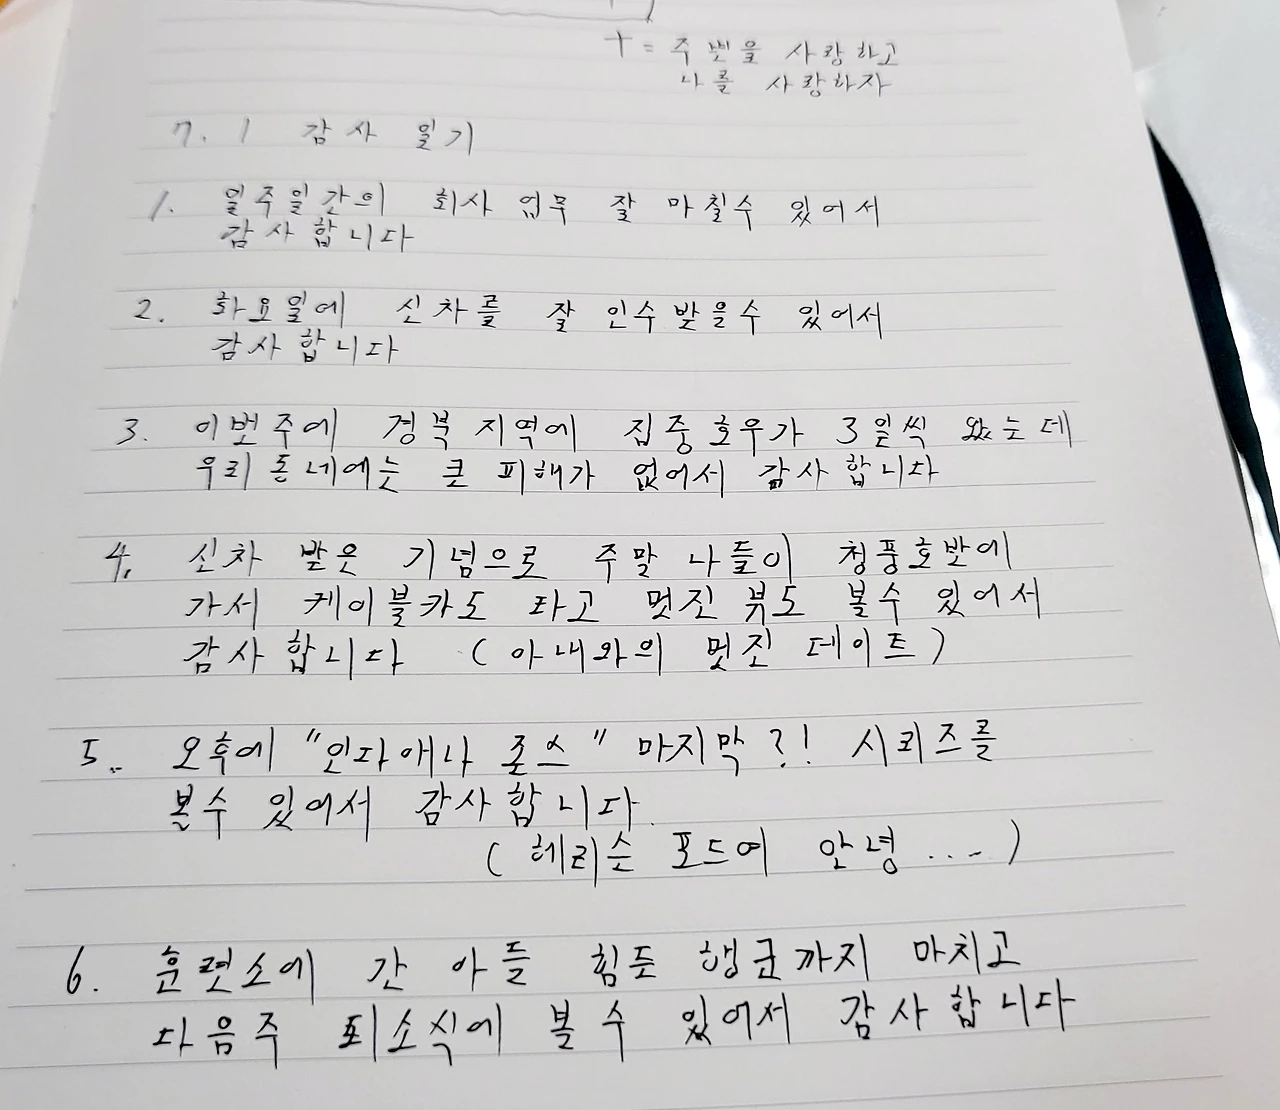 + = 주변을 사랑하고
나를 사랑하자
7. 1 감사 일기
1. 일주일간의 회사 업무 잘 마칠수 있어서
감사합니다
2. 화요일에 신차를 잘 인수받을수 있어서
감사합니다
3. 이번주에 경북 지역에 집중호우가 3일씩 왔는데
우리 동네에는 큰 피해가 없어서 감사합니다
4. 신차 받은 기념으로 주말 나들이 청풍호반에
가서 케이블카도 타고 멋진 뷰도 볼수 있어서
감사합니다 (아내와의 멋진 데이트)
5. 오후에 "인디애나 존스" 마지막?! 시리즈를
볼수 있어서 감사합니다.
(헤리슨 포드여 안녕....)
6. 훈련소에 간 아들 힘든 행군까지 마치고
다음주 퇴소식에 볼 수 있어서 감사합니다